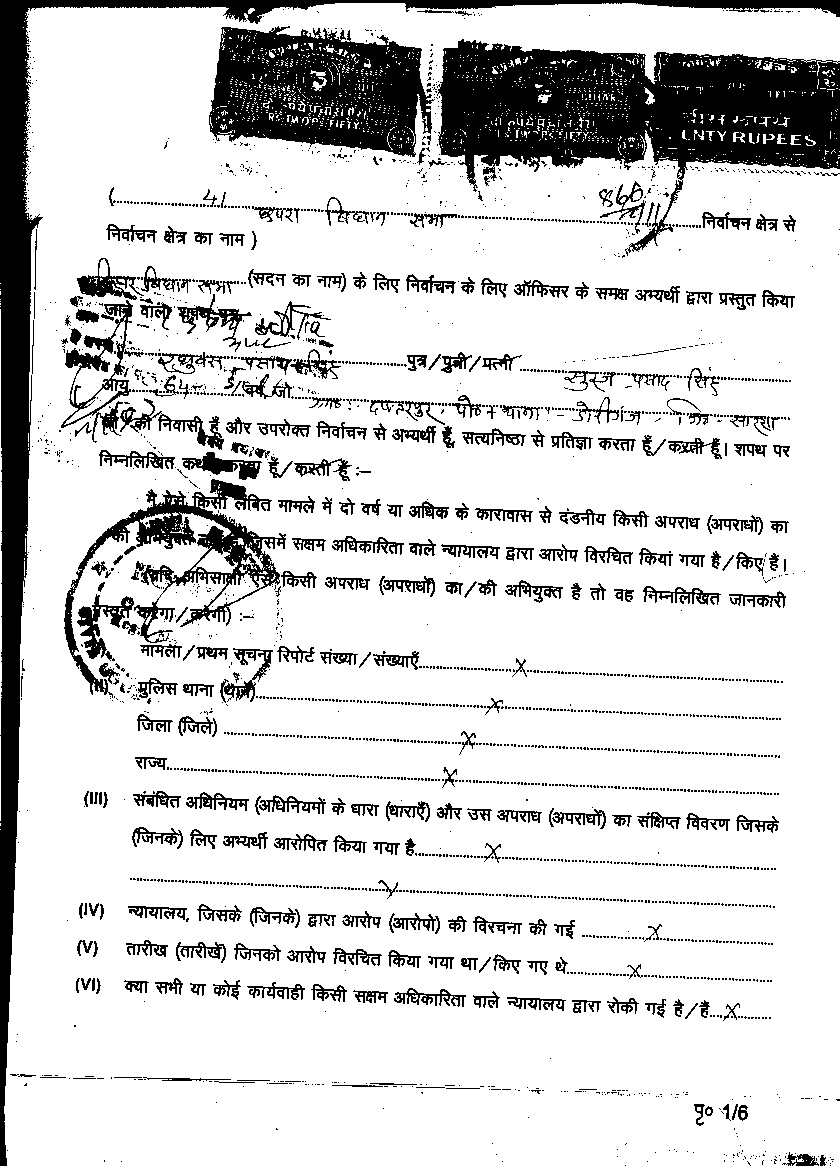 BIHAR
RS. TWO RS. FIFTY
बीस रुपये
TWENTY RUPEES
41 छपरा विधान सभा निर्वाचन क्षेत्र से
निर्वाचन क्षेत्र का नाम )
विधान सभा (सदन का नाम) के लिए निर्वाचन के लिए ऑफिसर के समक्ष अभ्यर्थी द्वारा प्रस्तुत किया
जाने वाली शपथ पत्र
सिंह पुत्र/पुत्री/पत्नी प्रसाद सिंह
आयु 64 वर्ष जो
की निवासी हूँ और उपरोक्त निर्वाचन से अभ्यर्थी हूँ, सत्यनिष्ठा से प्रतिज्ञा करता हूँ/करती हूँ। शपथ पर
निम्नलिखित कथन करता हूँ/करती हूँ :–
मै ऐसे किसी लंबित मामले में दो वर्ष या अधिक के कारावास से दंडनीय किसी अपराध (अपराधों) का
की अभियुक्त जिसमें सक्षम अधिकारिता वाले न्यायालय द्वारा आरोप विरचित किया गया है/किए हैं।
ऐसे किसी अपराध (अपराधों) का/की अभियुक्त है तो वह निम्नलिखित जानकारी
प्रस्तुत करेगा/करेगी) :–
मामला/प्रथम सूचना रिपोर्ट संख्या/संख्याएँ X
(II) पुलिस थाना (थाने) X
जिला (जिले) X
राज्य X
(III) संबंधित अधिनियम (अधिनियमों के धारा (धाराएँ) और उस अपराध (अपराधों) का संक्षिप्त विवरण जिसके
(जिनके) लिए अभ्यर्थी आरोपित किया गया है X
X
(IV) न्यायालय, जिसके (जिनके) द्वारा आरोप (आरोपो) की विरचना की गई X
(V) तारीख (तारीखें) जिनको आरोप विरचित किया गया था/किए गए थे X
(VI) क्या सभी या कोई कार्यवाही किसी सक्षम अधिकारिता वाले न्यायालय द्वारा रोकी गई है/हैं X
पृ० 1/6